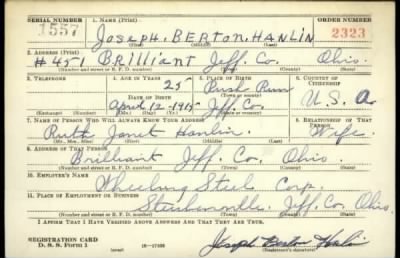 SERIAL NUMBER 1. NAME (Print) ORDER NUMBER
1557 JOSEPH. BERTON. HANLIN 2323
(First) (Middle) (Last)
2. ADDRESS (Print)
#451 BRILLIANT Jeff. Co. Ohio.
(Number and street or R. F. D. number) (Town) (County) (State)
3. TELEPHONE 4. AGE IN YEARS 5. PLACE OF BIRTH 6. COUNTRY OF CITIZENSHIP
25 Rush Run
DATE OF BIRTH (Town or county)
April 12-1915 Jeff. Co. U.S.A.
(Mo.) (Day) (Yr.) (State or country)
7. NAME OF PERSON WHO WILL ALWAYS KNOW YOUR ADDRESS 8. RELATIONSHIP OF THAT PERSON
Ruth Janet Hanlin. Wife.
(Mr., Mrs., Miss) (First) (Middle) (Last)
9. ADDRESS OF THAT PERSON
Brilliant Jeff. Co. Ohio.
(Number and street or R. F. D. number) (Town) (County) (State)
10. EMPLOYER'S NAME
Steel Corp.
11. PLACE OF EMPLOYMENT OR BUSINESS
Jeff. Co. Ohio.
(Number and street or R. F. D. number) (Town) (County) (State)
I AFFIRM THAT I HAVE VERIFIED ABOVE ANSWERS AND THAT THEY ARE TRUE.
REGISTRATION CARD
D. S. S. Form 1 (over) 16-17105 Joseph Berton Hanlin
(Registrant's signature)